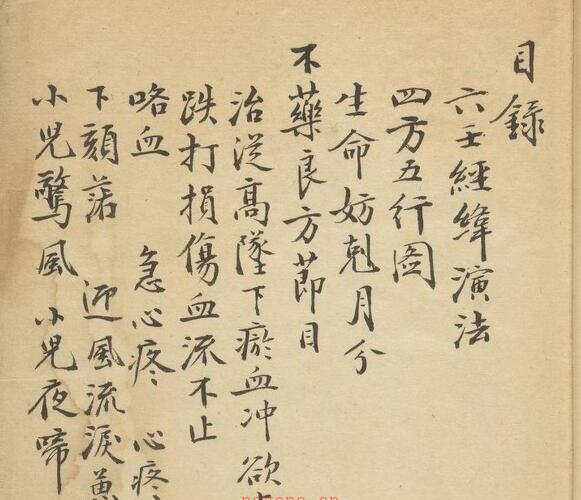 目錄
六壬經緯演法
四方五行图
生命妨剋月分
不藥良方節目
治從高墜下瘀血冲欲
跌打損傷血流不止
咯血 急心疼 心疼
下頦落 迎風流淚
小児驚風 小児夜啼